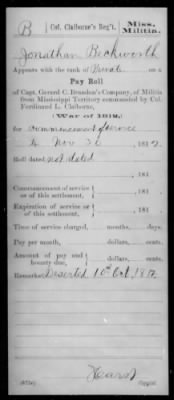 B | Col. Claiborne's Reg't, | Miss. Militia.
Jonathan Beckworth
Appears with the rank of Private on a
Pay Roll
of Capt. Gerard C. Brandon's Company, of Militia
from Mississippi Territory commanded by Col.
Ferdinand L. Claiborne,
(War of 1812,)
for commencement of service
to Nov 30, 1812
Roll dated not dated
, 181
Commencement of service or of this settlement, } , 181
Expiration of service or of this settlement, } , 181
Time of service charged, months, days.
Pay per month, dollars, cents.
Amount of pay and bounty due, } dollars, cents.
Remarks: Deserted 10th Oct, 1812
Copyist.